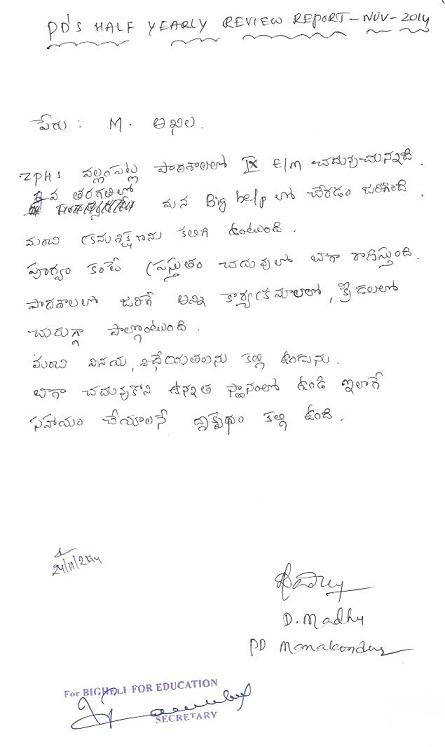 PD'S HALF YEARLY REVIEW REPORT - NOV - 2014
పేరు : M. అఖిల.
ZPHS పాఠశాలలో IX E/M చదువుచున్నది.
వ తరగతిలో మన Big help లో చేరడం జరిగింది.
మంచి క్రమశిక్షణను కలిగి ఉంటుంది.
పూర్వం కంటే ప్రస్తుతం చదువులో బాగా రాణిస్తుంది.
పాఠశాలలో జరిగే అన్ని కార్యక్రమాలలో, క్రీడలలో
చురుగ్గా పాల్గొంటుంది.
మంచి వినయ, విధేయతలను కల్గి ఉండును.
బాగా చదువుకొని ఉన్నత స్థానంలో ఉండి ఇలాగే
సహాయం చేయాలనే దృక్పథం కల్గి ఉంది.
24/11/2014
D. Madhu
PD Manakondur
For BIGHELP FOR EDUCATION
SECRETARY